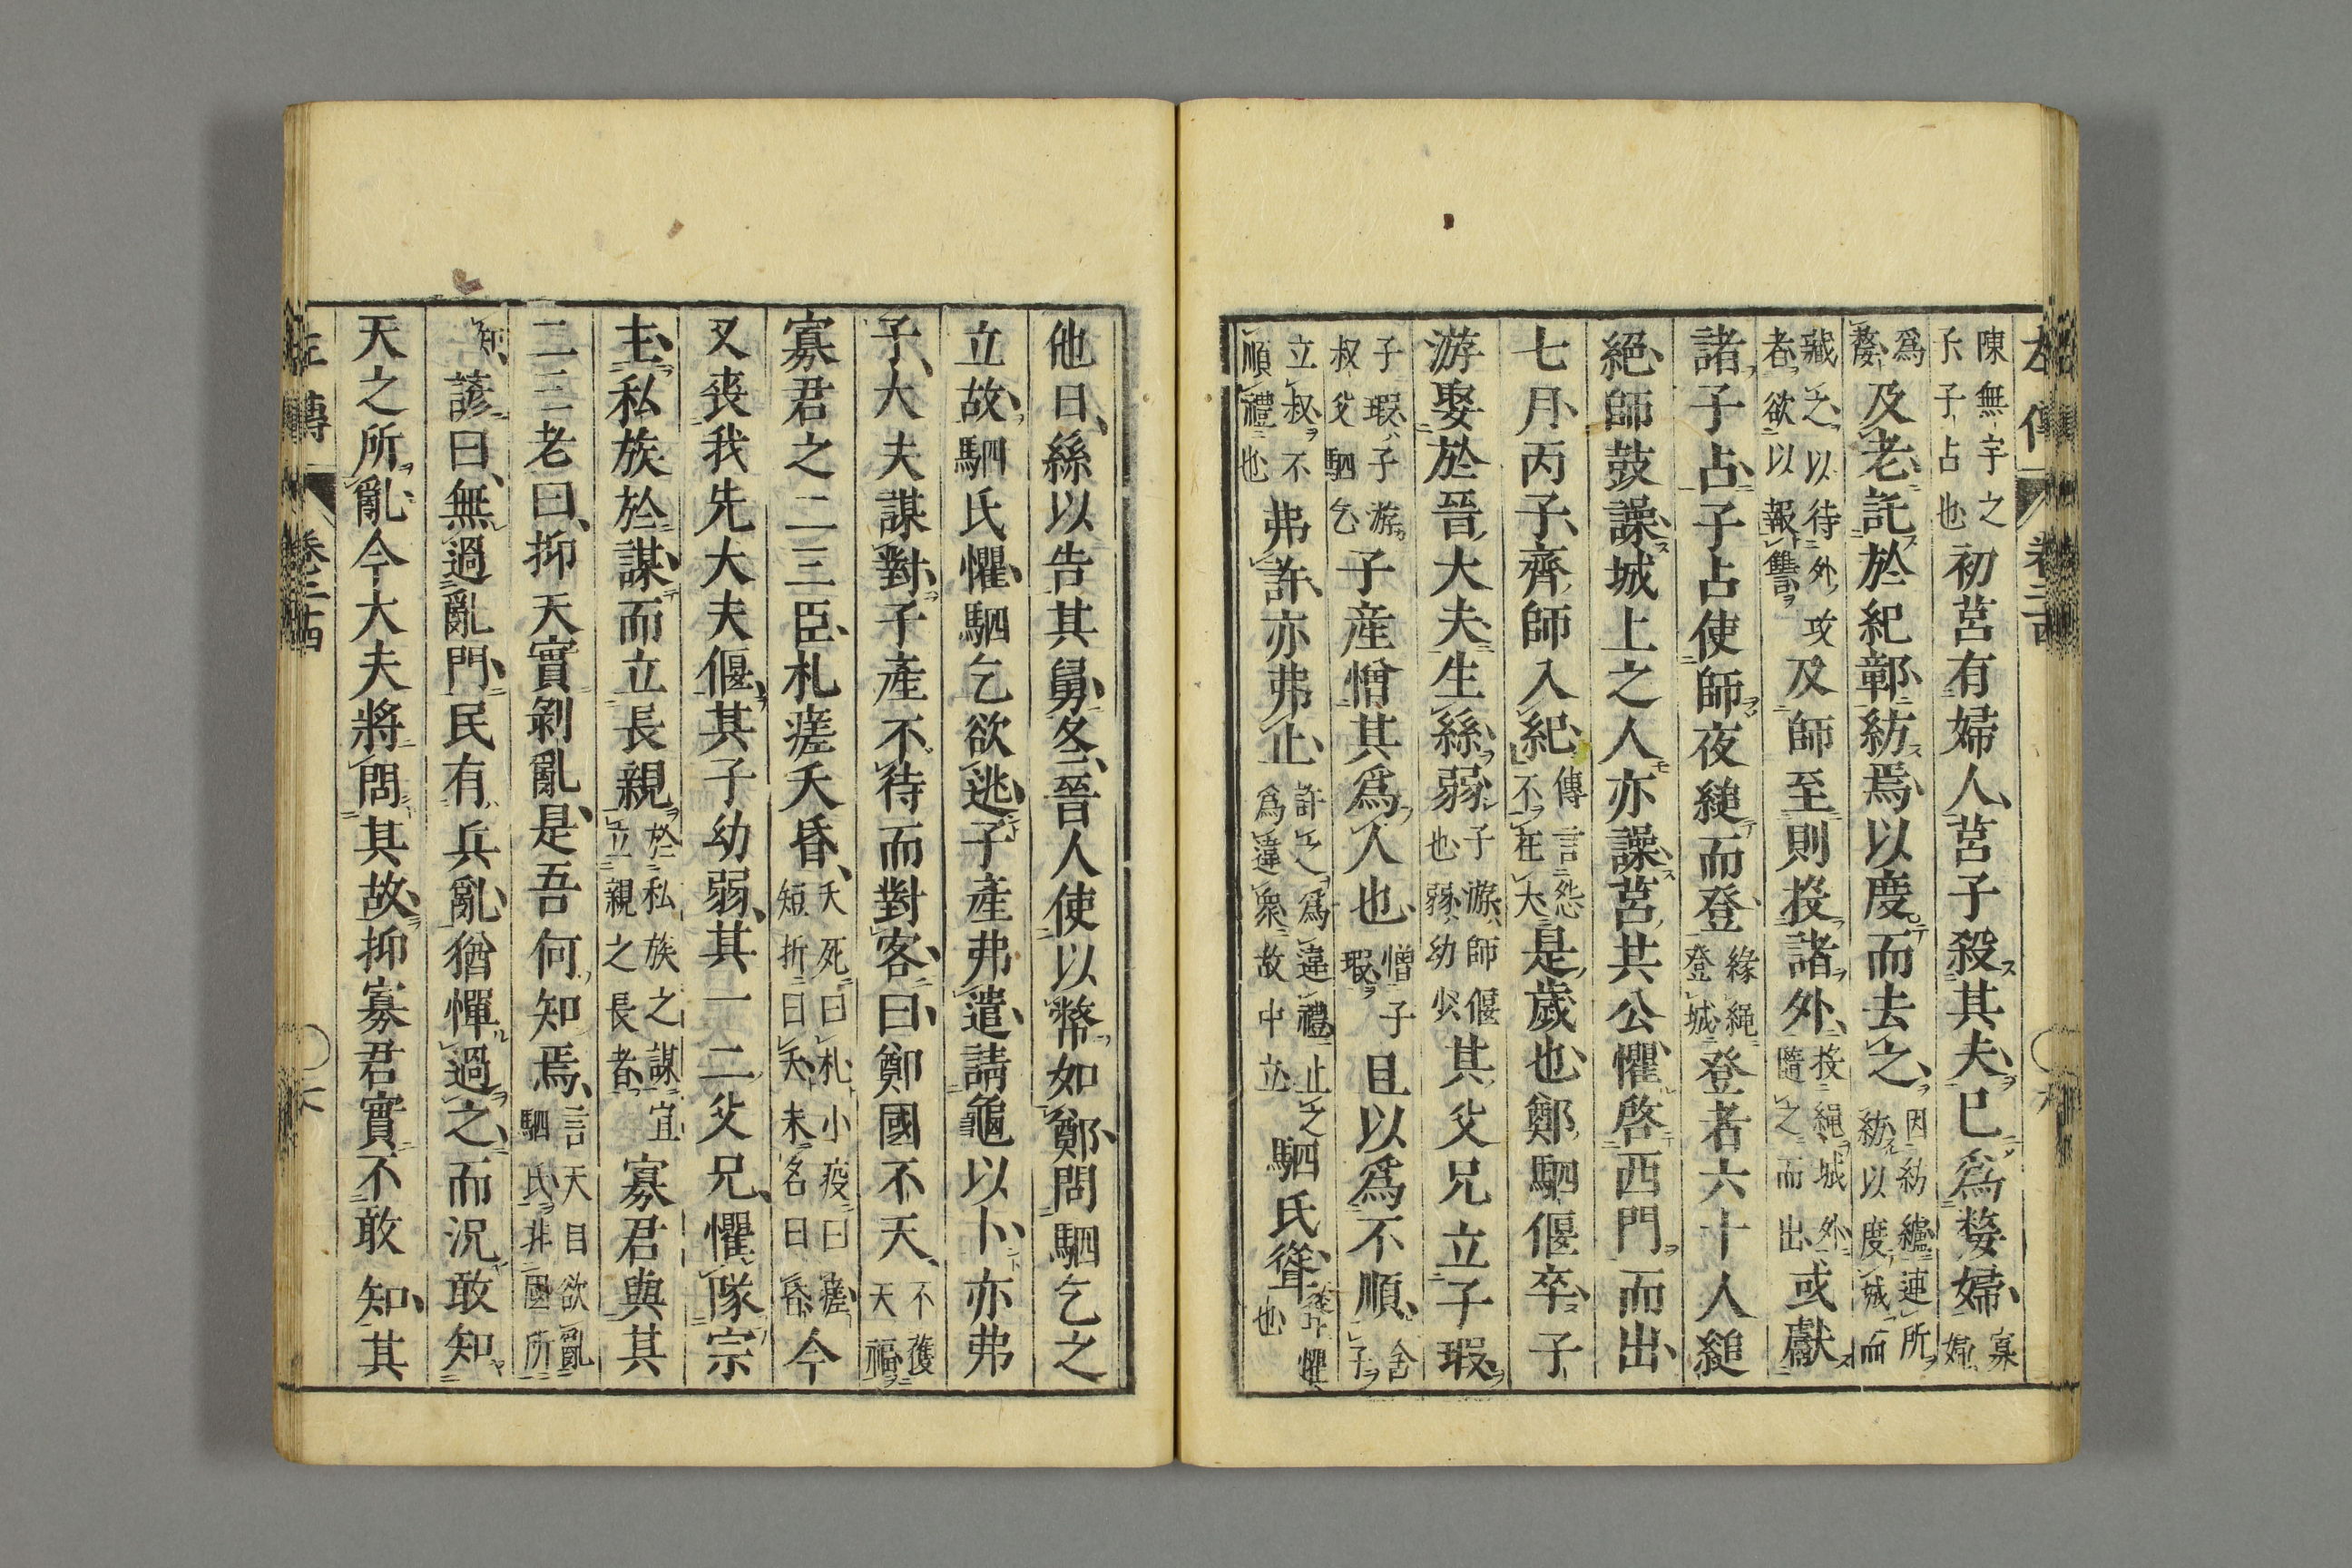 左傳 卷二十四
陳無宇之子子占也初莒有婦人莒子殺其夫已爲嫠婦寡婦
爲嫠及老託於紀鄣紡焉以度而去之因紡纑連所紡以度城而
藏之以待外攻者欲以報讐及師至則投諸外投繩城外隨之而出或獻
諸子占子占使師夜縋而登緣繩登城登者六十人縋
絕師鼓譟城上之人亦譟莒共公懼啓西門而出
七月丙子齊師入紀傳言怨不在大是歲也鄭駟偃卒子
游娶於晉大夫生絲弱子游駟偃也弱幼少其父兄立子瑕
子瑕子游叔父駟乞子產憎其爲人也憎子瑕且以爲不順舍子
立叔不順禮也弗許亦弗止許之爲違禮止之爲違衆故中立駟氏聳聳懼也
他日絲以告其舅冬晉人使以幣如鄭問駟乞之
立故駟氏懼駟乞欲逃子產弗遣請龜以卜亦弗
子大夫謀對子產不待而對客曰鄭國不天不獲天福
寡君之二三臣札瘥夭昏夭死曰札小疫曰瘥短折曰夭未名曰昏今
又喪我先大夫偃其子幼弱其一二父兄懼隊宗
主私族於謀而立長親於私族之謀宜立親之長者寡君與其
二三老曰抑天實剝亂是吾何知焉言天自欲亂駟氏非國所
知諺曰無過亂門民有兵亂猶憚過之而況敢知
天之所亂今大夫將問其故抑寡君實不敢知其
左傳 卷二十四